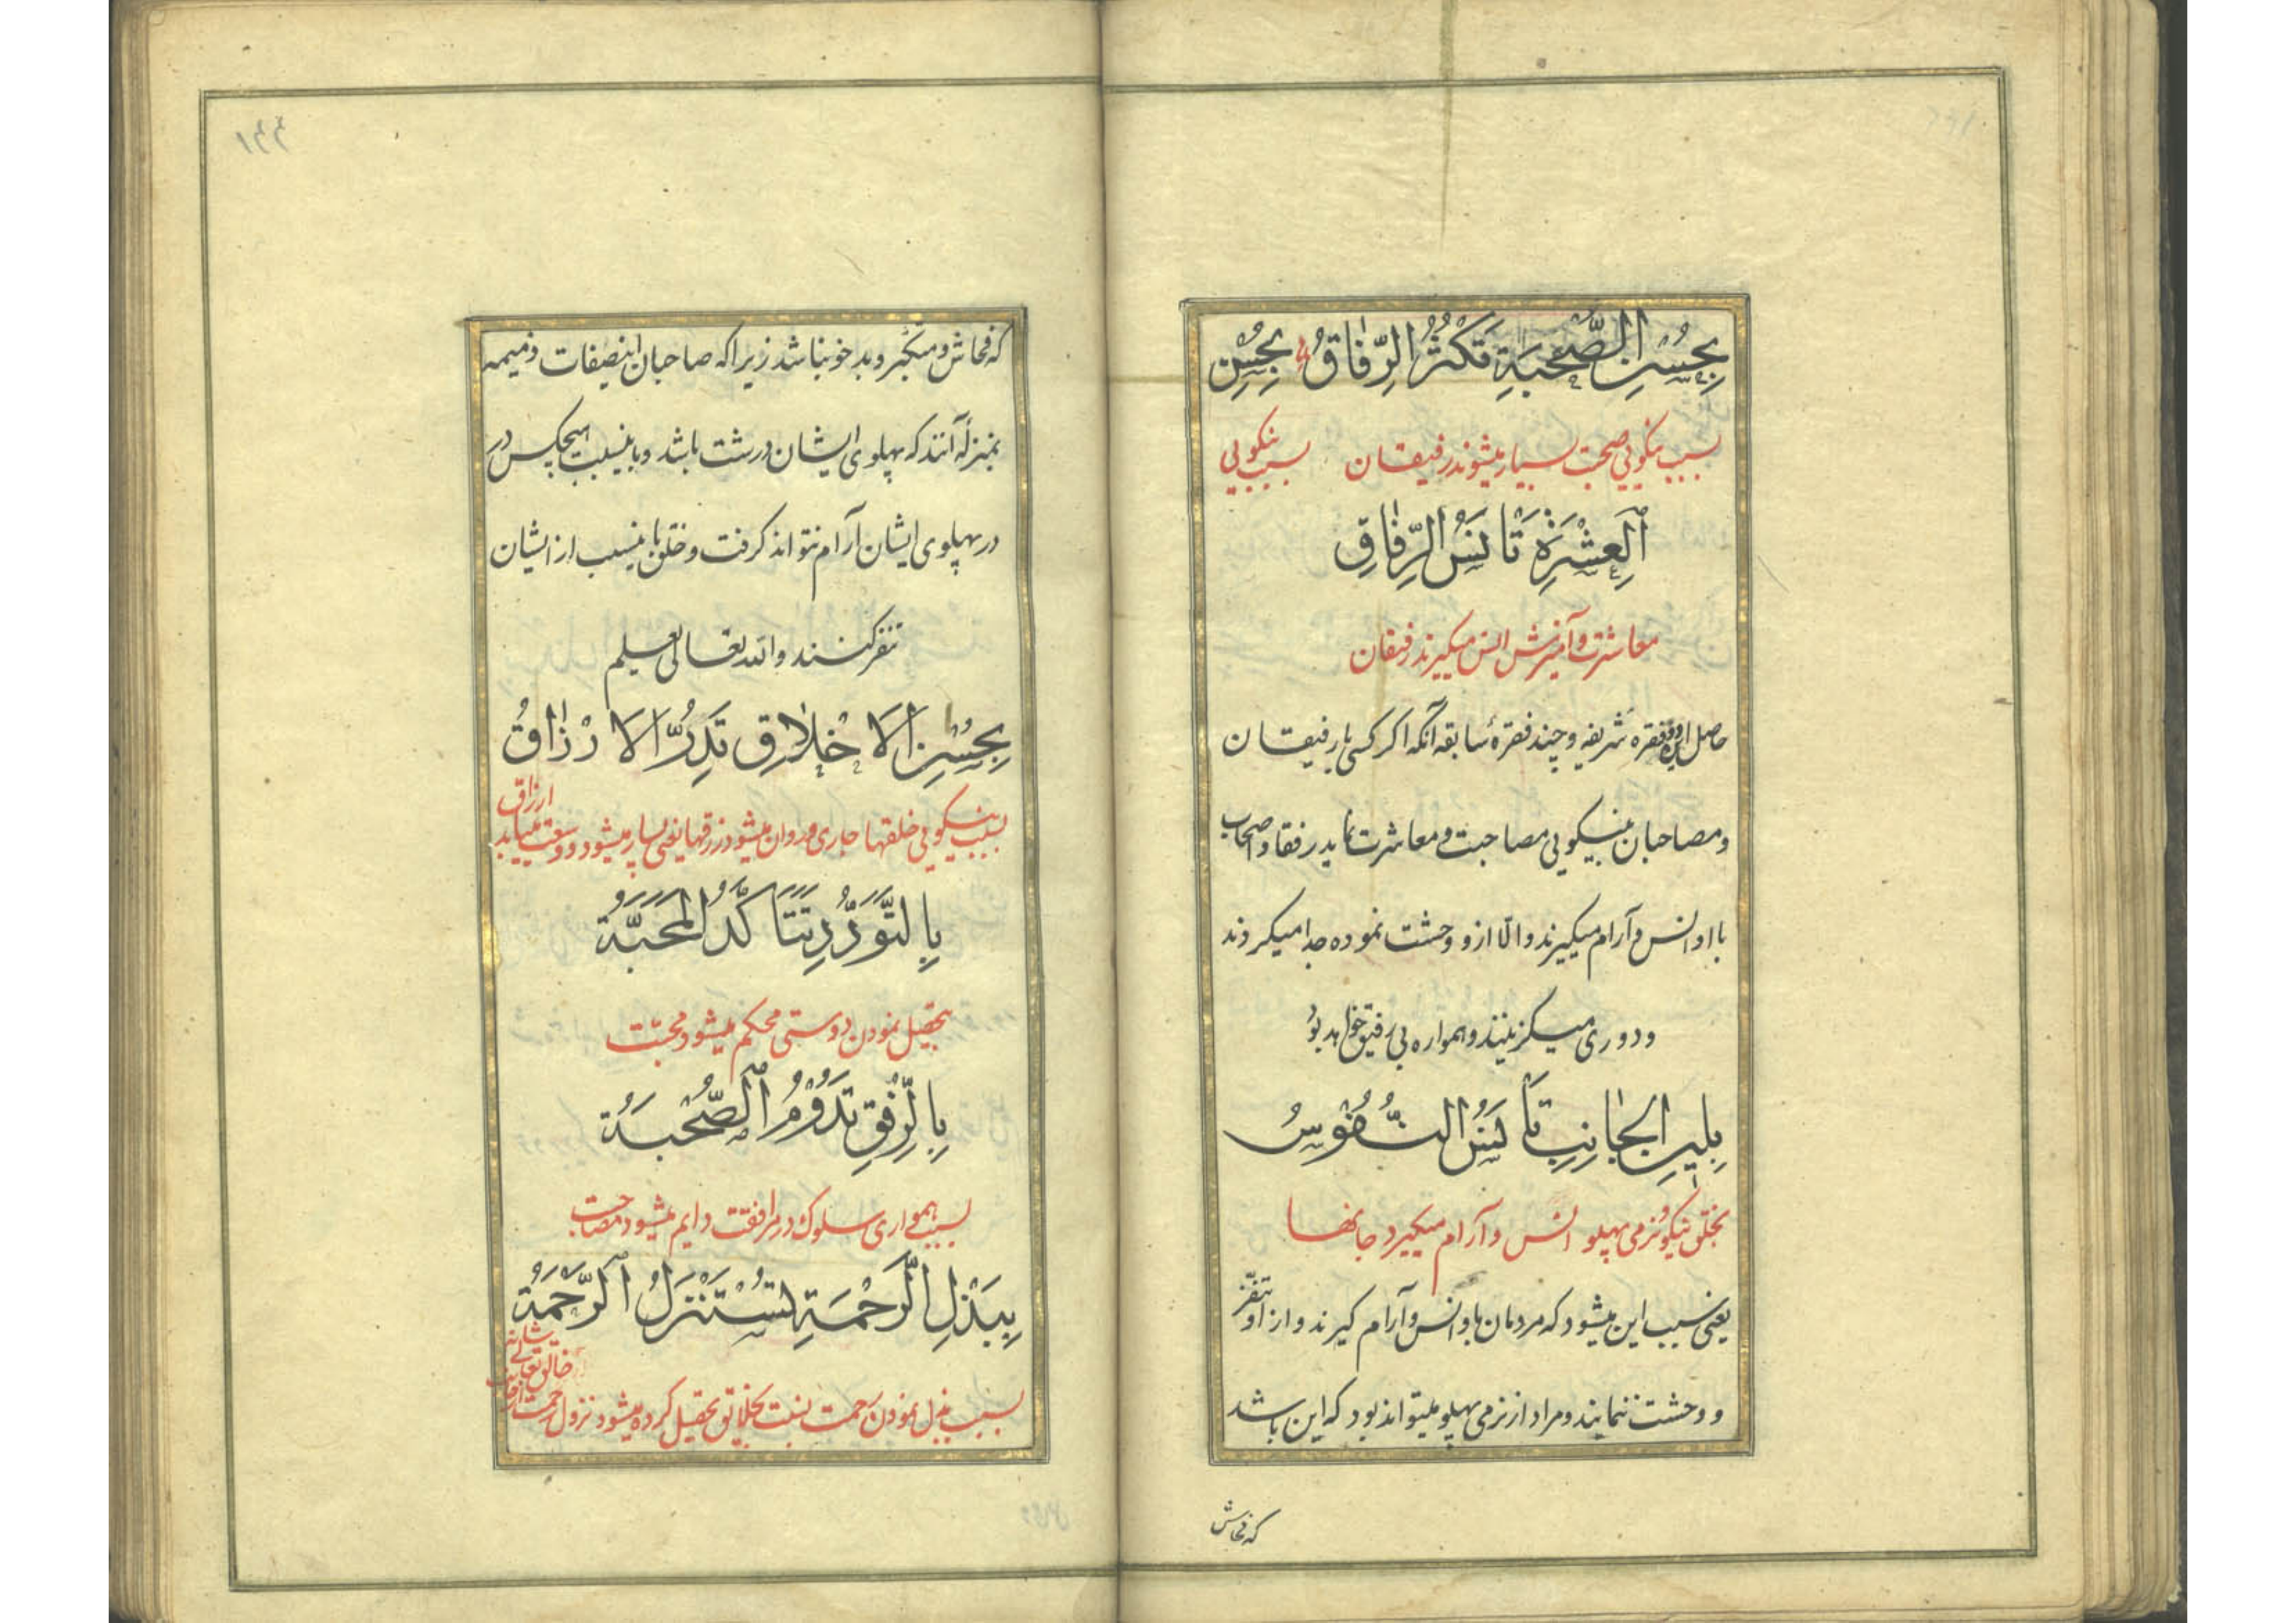 بِحُسْنِ الصُّحْبَةِ تَكْثُرُ الرِّفَاقُ بِحُسْنِ
بسبب نیکویی صحبت بسیار میشوند رفیقان بسبب نیکویی
الْعِشْرَةِ تَأنَسُ الرِّفَاقِ
معاشرت و آمیزش انس میگیرند رفیقان
حاصل این دو فقره شریفه و چند فقرهٔ سابقه آنکه اگر کسی با رفیقان
و مصاحبان بنیکویی مصاحبت و معاشرت نماید رفقا و اصحاب
با او انس و آرام میگیرند والّا ازو وحشت نموده جدا میگردند
و دوری میگزینند و همواره بی رفیق خواهد بود
بِلِينِ الْجَانِبِ تَأنَسُ النُّفُوسُ
بخلق نیکو و نرمی پهلو انس و آرام میگیرد جانها
یعنی سبب این میشود که مردمان باو انس و آرام گیرند و از او تنفّر
و وحشت ننمایند و مراد از نرمی پهلو میتواند بود که این باشد
که فحاش
۱۴۴
که فحاش و متکبّر و بد خو نباشد زیرا که صاحبان اینصفات ذمیمه
بمنزلهٔ آنند که پهلوی ایشان درشت باشد و باینسبب هیچکس در
در پهلوی ایشان آرام نتواند گرفت و خلق باینسبب از ایشان
تنفر کنند والله تعالی یعلم
بِحُسْنِ الاَخْلَاقِ تَدِرُّ الاَرْزَاقُ
بسبب نیکویی خلقها جاری و روان میشود رزقها یعنی بسیار میشود و وسعت مییابد ارزاق
بِالتَّوَدُّدِ تَتَأَكَّدُ الْمَحَبَّةُ
بتحصیل نمودن دوستی محکم میشود محبّت
بِالرِّفْقِ تَدُوْمُ الصُّحْبَةُ
بسبب همواری سلوک در مرافقت دایم میشود مصاحبت
بِبَذْلِ الرَّحْمَةِ تُسْتَنْزَلُ الرَّحْمَةُ
بسبب بذل نمودن رحمت نسبت بخلایق تحصیل کرده میشود نزول رحمت از جانب خالق تعالی شانه